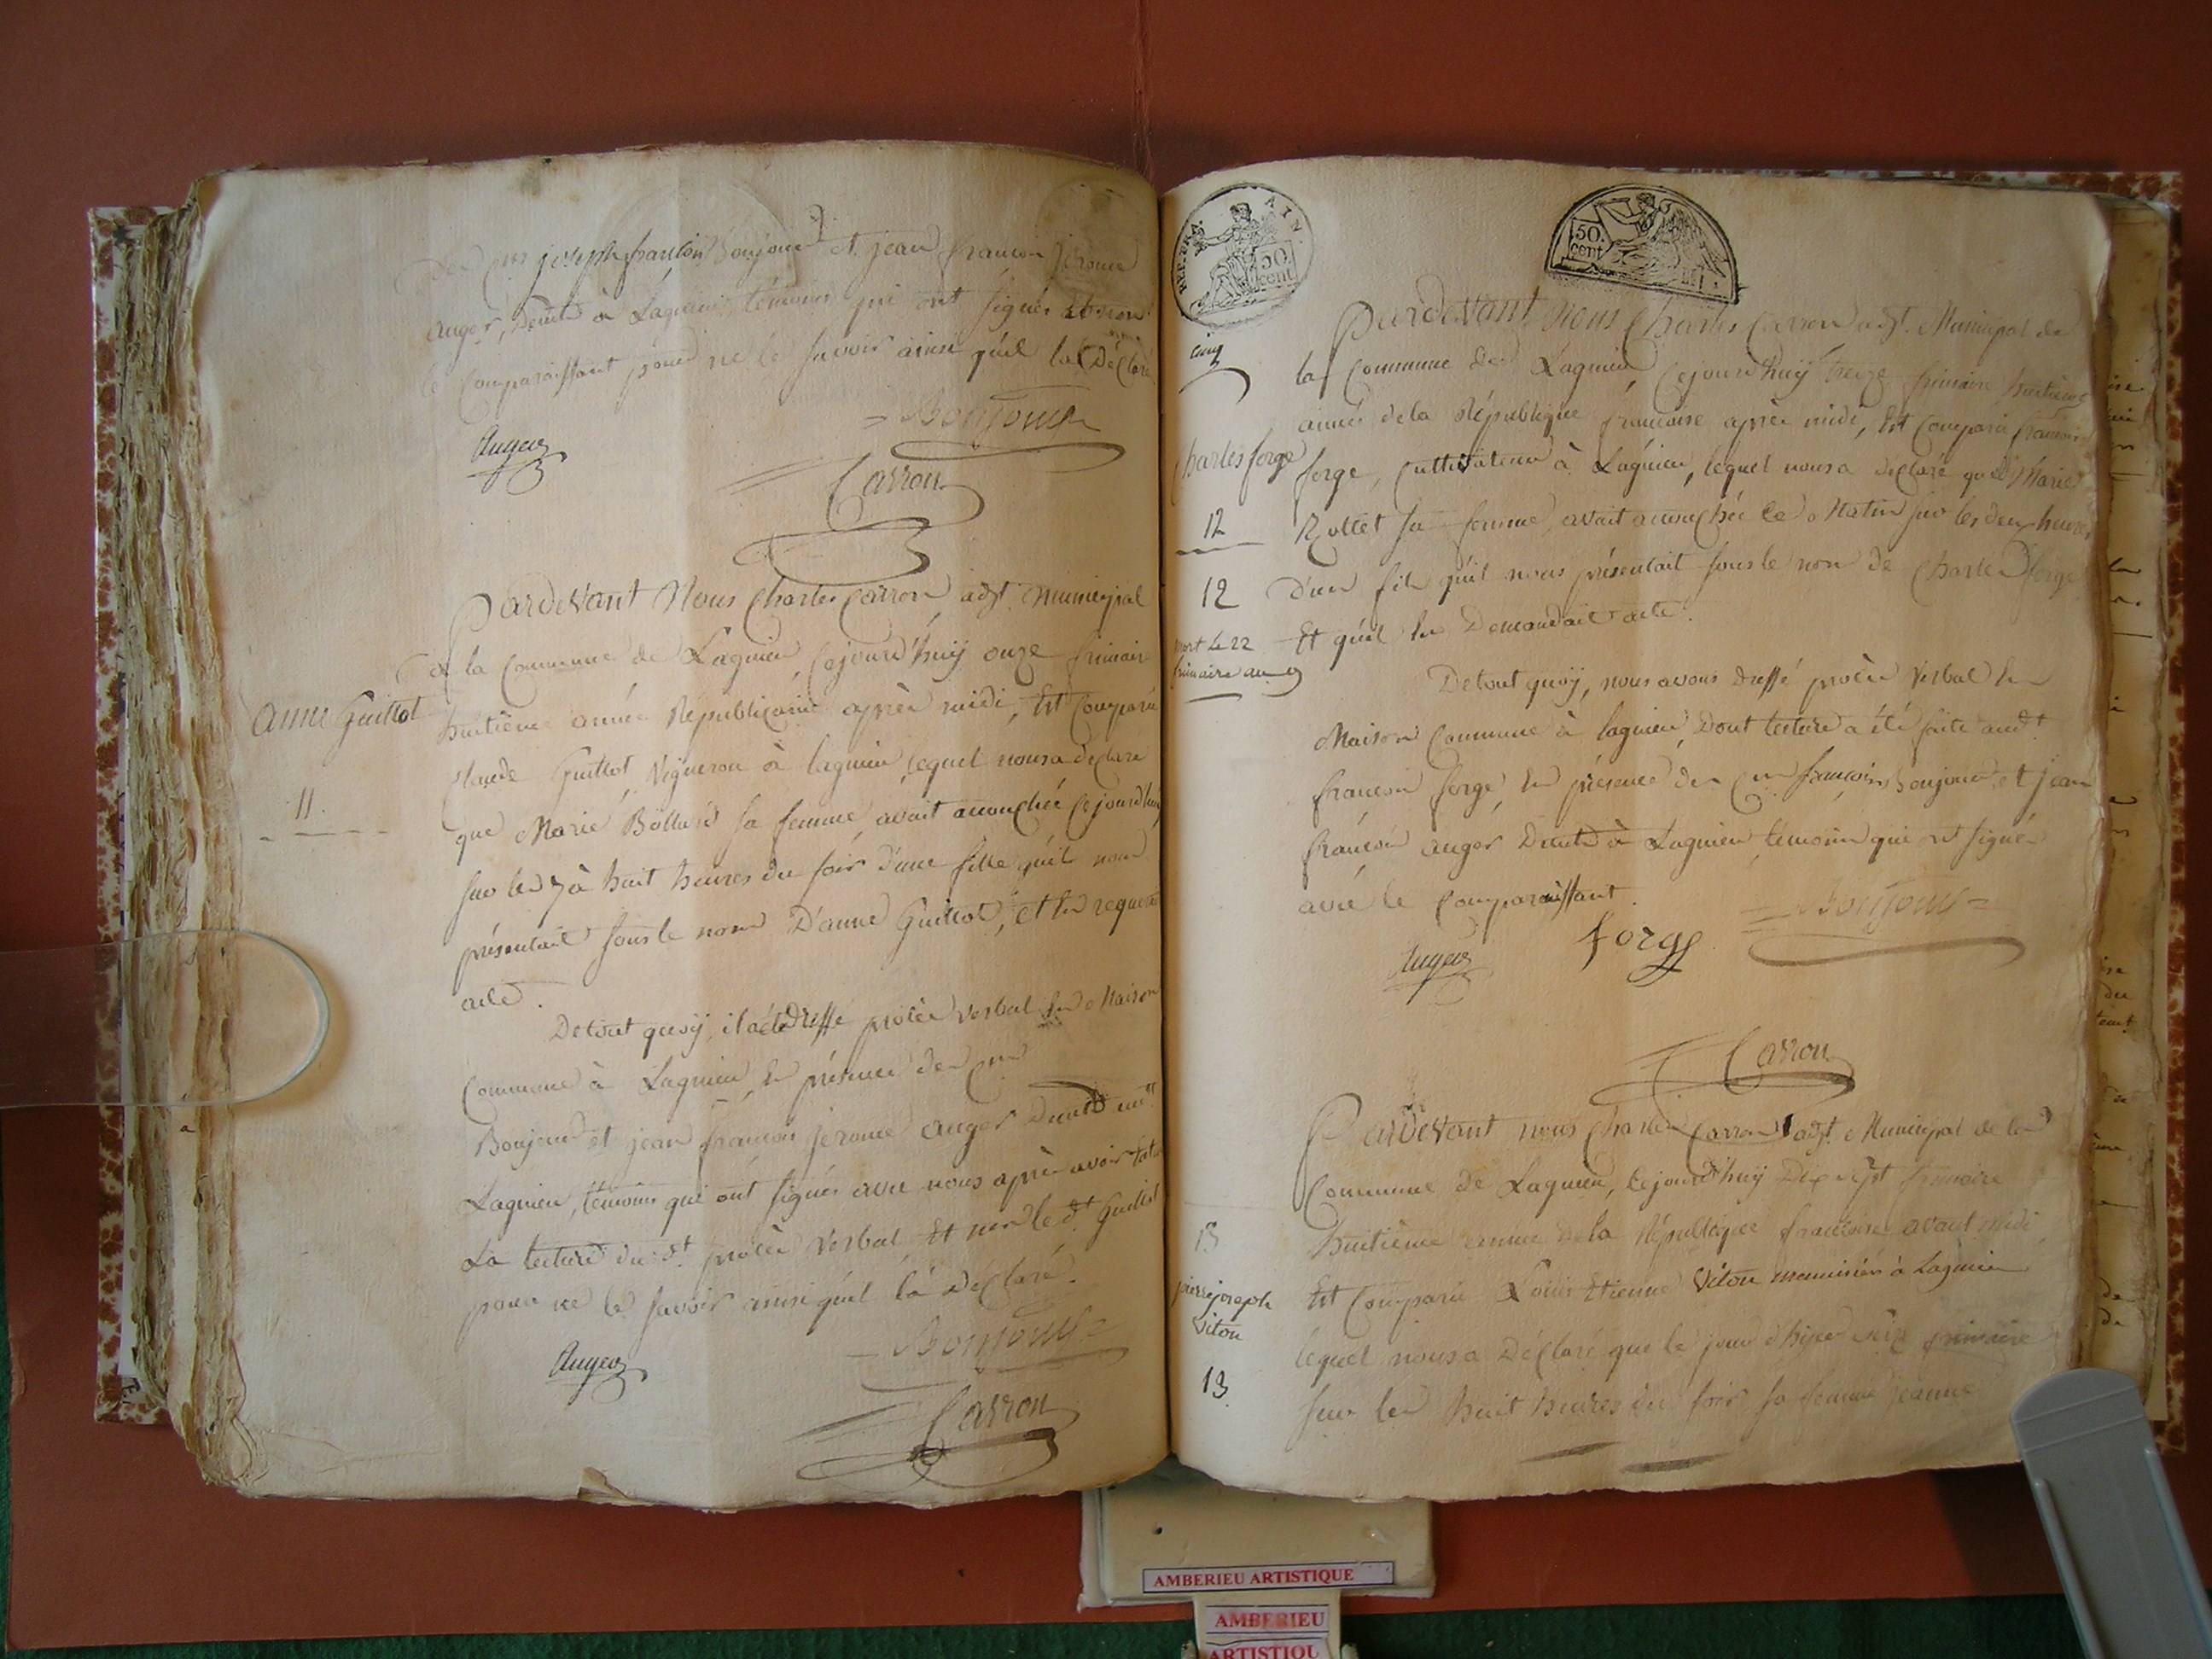 joseph françois Bonjour et jean françois jerome
auger, deurant à Lagnieu, témoins qui ont signés et non
le Comparaissant pour ne le savoir ainsi qu'il la Déclaré
Bonjour
Auger
Carron
Pardevant Nous Charles Carron adjt. Municipal
de la Commune de Lagnieu Cejourd'huy onze frimaire
anne Guillot
huitième année Républicaine après midi, Est Comparu
Claude Guillot Vigneron à lagnieu lequel nous a déclaré
11
que Marie sa femme, avait accouchée Cejourd'huy
sur les 7 à huit heures du soir d'une fille qu'il nous
présentait sous le nom D'anne Guillot, et en requerait
acte.
De tout quoÿ, il a été dressé procès verbal En Maison
Commune à Lagnieu En présence des Cns
Bonjour et jean françois jerome auger deurant audt
Lagnieu, témoins qui ont signés avec nous après avoir fait
La lecture dudt. procès Verbal Et non ledt Guillot
pour ne le savoir ainsi qu'il l'a Déclaré.
Auger
Bonjour
Carron
REP. FRA. AIN.
50. cent
50. cent
cinq
Pardevant Nous Charles Carron adjt. Municipal de
la Commune de Lagnieu Cejourd'huÿ treize frimaire huitieme
année de la République française après midi, Est Comparu françois
Charles forge
forge, Cultivateur à Lagnieu, lequel nous a déclaré que Marie
12
Rollet sa femme avait accouchée Ce Matin sur les deux heures
12
D'un fils qu'il nous présentait sous le nom de Charles forge
mort le 22
frimaire an 9
Et qu'il En Demandait acte.
De tout quoÿ, nous avons dressé procès Verbal En
Maison Commune à lagnieu, Dont lecture a été faite audt.
françois forge, En présence des Cns françois Bonjour et jean
françois auger Deurant à Lagnieu témoins qui ont signés
avec le Comparaissant.
Auger
forge
Bonjour
Carron
Pardevant nous Charles Carron adjt. Municipal de la
Commune de Lagnieu, Cejourd'huÿ Dix sept frimaire
13
huitième année de la République française avant midi
pierre joseph
Viton
Est Comparu Louis Etienne Viton menuisier à Lagnieu
lequel nous a Déclaré que le jour d'hyer seize frimaire
13
sur les huit heures du soir sa femme jeanne
AMBERIEU ARTISTIQUE
AMBERIEU
ARTISTIQU